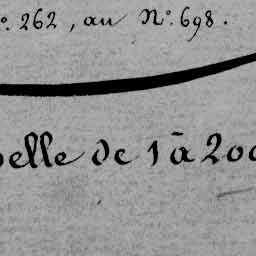 o. 262, au No. 698.
elle de 1 à 200